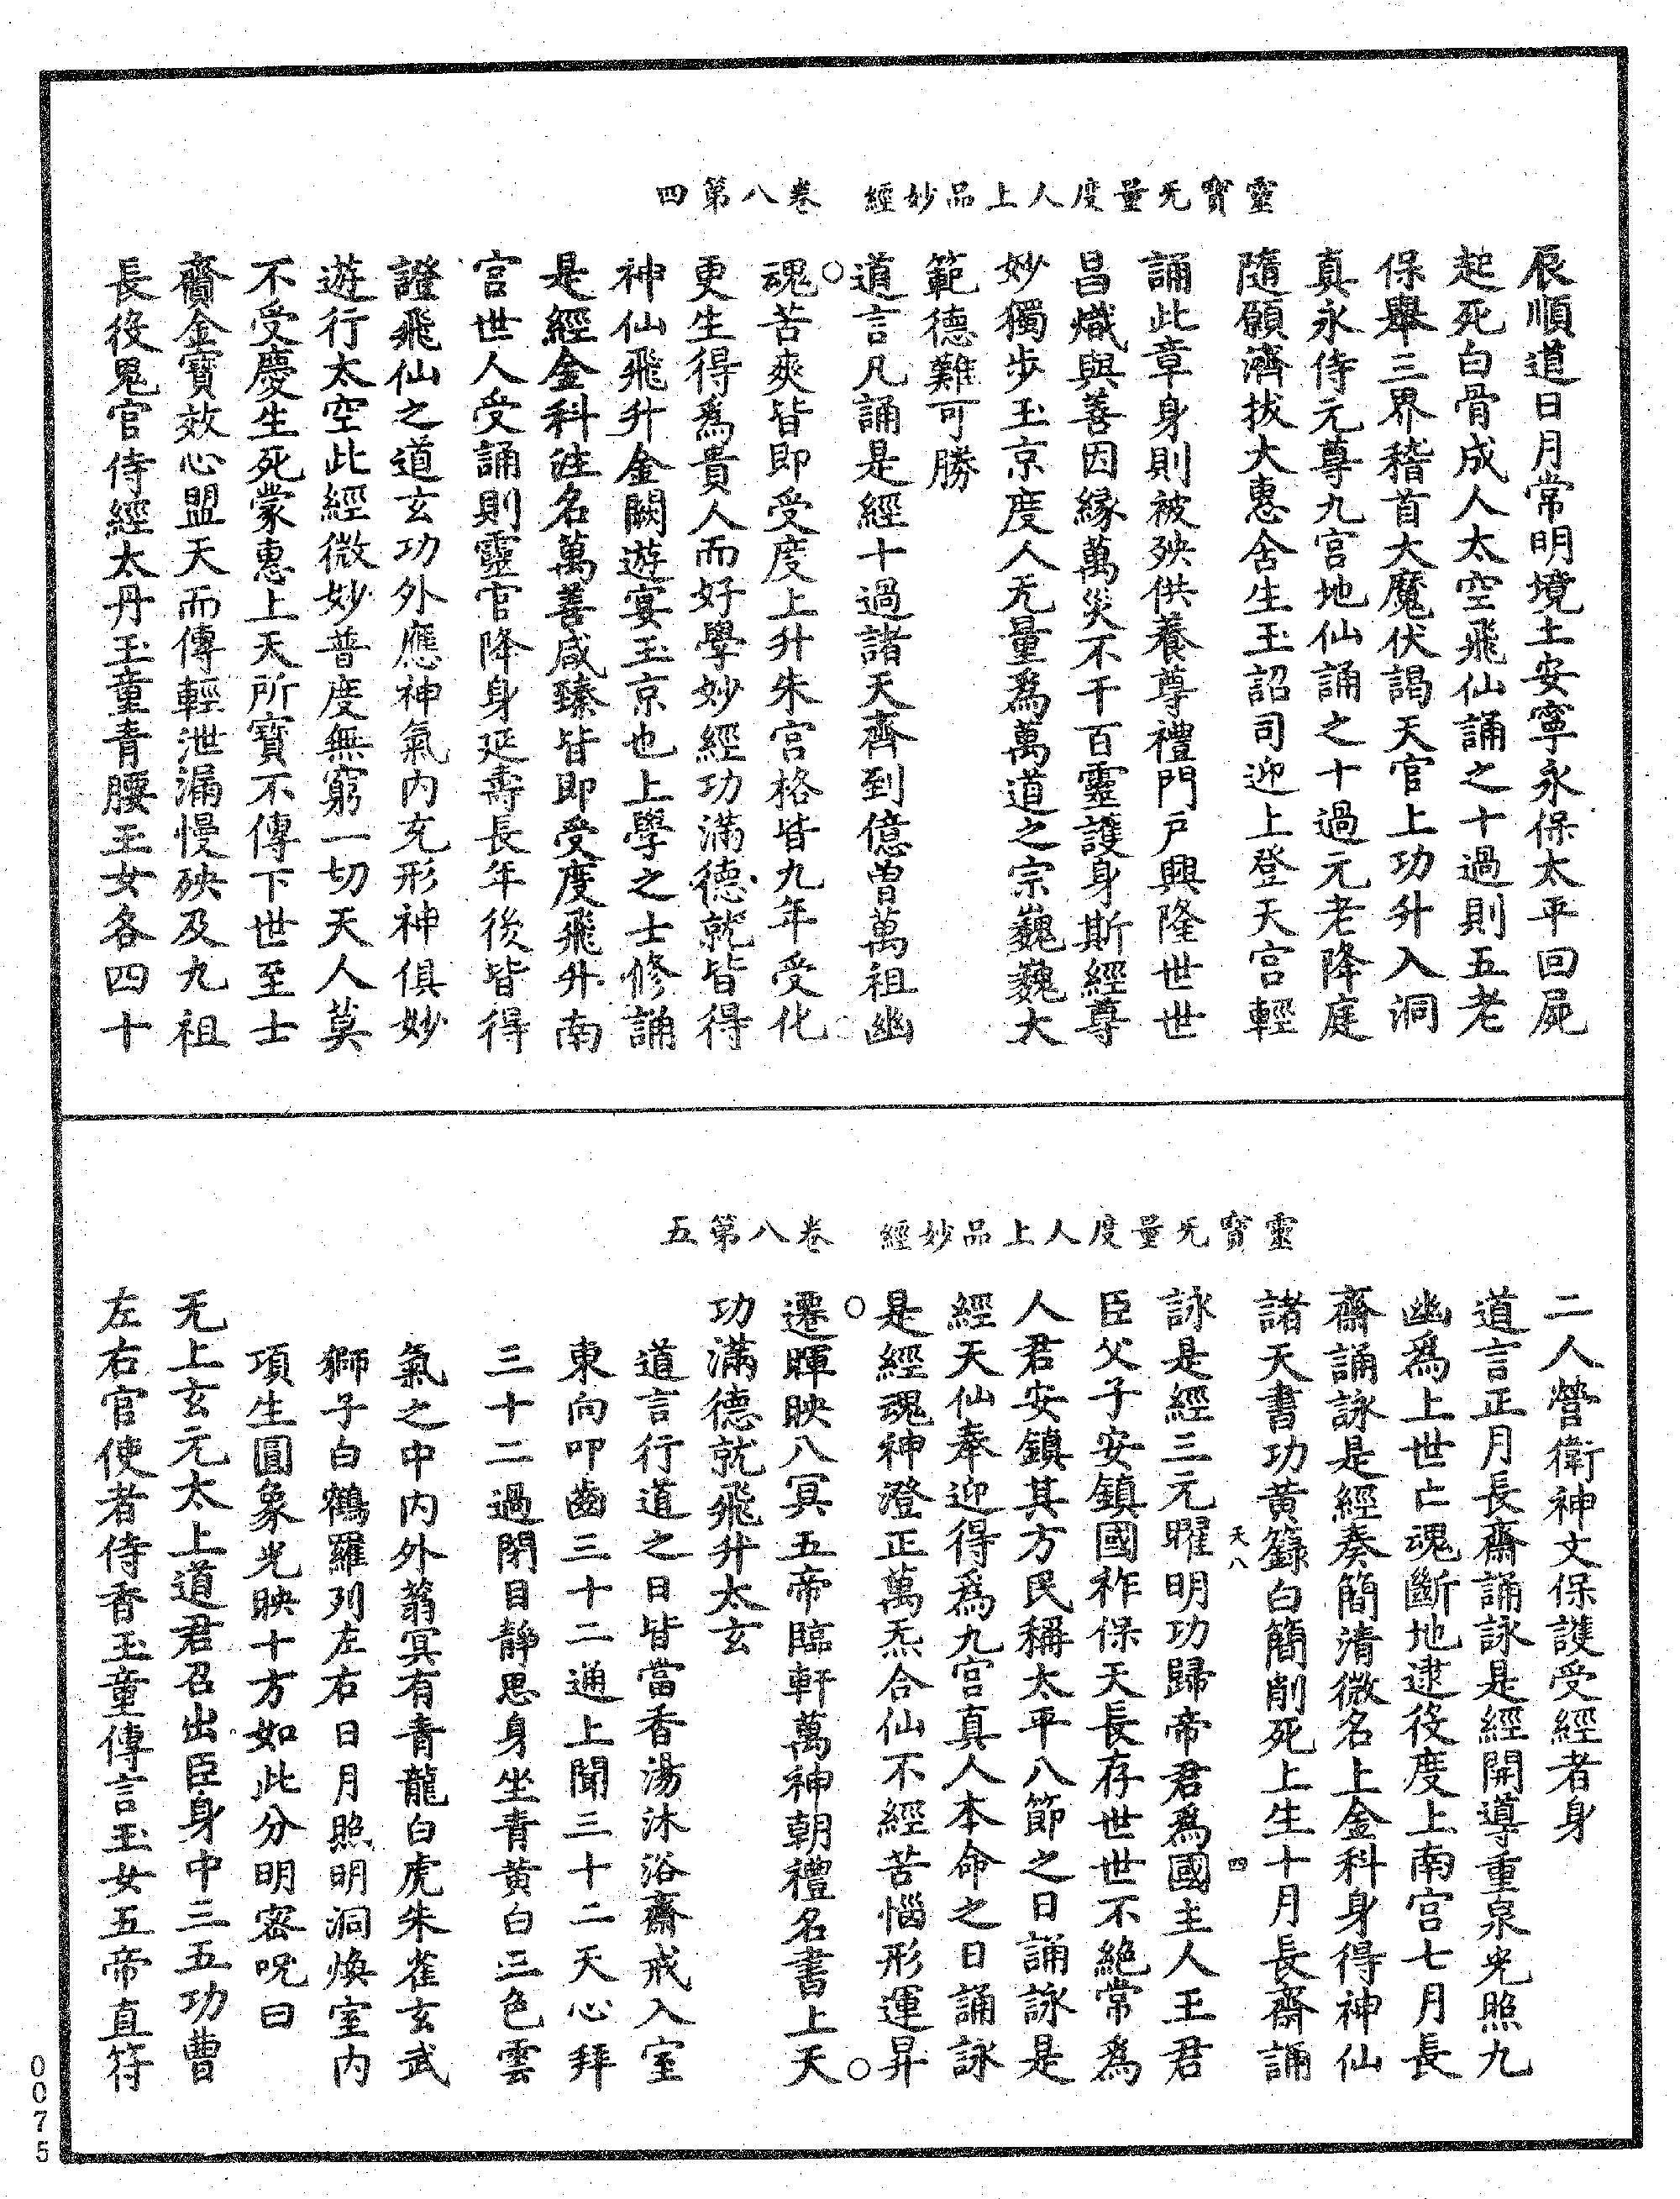 靈寶无量度人上品妙經　卷八第四
辰順道日月常明境土安寧永保太平回屍
起死白骨成人太空飛仙誦之十過則五老
保舉三界稽首大魔伏謁天官上功升入洞
真永侍元尊九宮地仙誦之十過元老降庭
隨願濟拔大惠舍生玉詔司迎上登天宮輕
誦此章身則被殃供養尊禮門戶興隆世世
昌熾與善因緣萬災不干百靈護身斯經尊
妙獨步玉京度人无量爲萬道之宗巍巍大
範德難可勝
道言凡誦是經十過諸天齊到億曾萬祖幽
○
魂苦爽皆即受度上升朱宮格皆九年受化
更生得爲貴人而好學妙經功滿德就皆得
神仙飛升金闕遊宴玉京也上學之士修誦
是經金科注名萬善咸臻皆即受度飛升南
宮世人受誦則靈官降身延壽長年後皆得
證飛仙之道玄功外應神氣內充形神俱妙
遊行太空此經微妙普度無窮一切天人莫
不受慶生死蒙惠上天所寶不傳下世至士
齎金寶效心盟天而傳輕泄漏慢殃及九祖
長役鬼官侍經太丹玉童青腰玉女各四十
靈寶无量度人上品妙經　卷八第五
二人營衛神文保護受經者身
道言正月長齋誦詠是經開導重泉光照九
幽爲上世亡魂斷地逮役度上南宮七月長
齋誦詠是經奏簡清微名上金科身得神仙
諸天書功黃籙白簡削死上生十月長齋誦
天八　四
詠是經三元曜明功歸帝君爲國主人王君
臣父子安鎮國祚保天長存世世不絕常爲
人君安鎮其方民稱太平八節之日誦詠是
經天仙奉迎得爲九宮真人本命之日誦詠
是經魂神澄正萬炁合仙不經苦惱形運昇
○　○
遷暉映八冥五帝臨軒萬神朝禮名書上天
功滿德就飛升太玄
道言行道之日皆當香湯沐浴齋戒入室
東向叩齒三十二通上聞三十二天心拜
三十二過閉目靜思身坐青黃白三色雲
氣之中內外蓊冥有青龍白虎朱雀玄武
獅子白鶴羅列左右日月照明洞煥室內
項生圓象光映十方如此分明密呪曰
无上玄元太上道君召出臣身中三五功曹
左右官使者侍香玉童傳言玉女五帝直符
0075